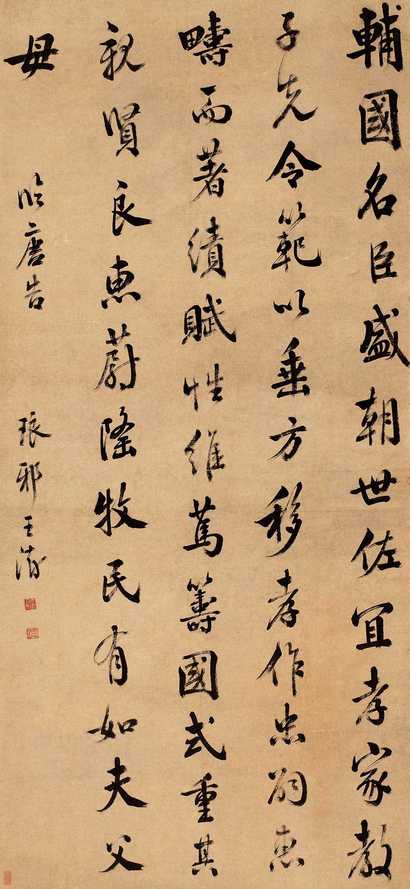 輔國名臣盛朝世佐宜孝家教
子先令範以垂方移孝作忠嗣惠
疇而著績賦性維篤籌國式重其
親賢良惠蔚隆牧民有如夫父
毋
临唐告
琅邪王澍